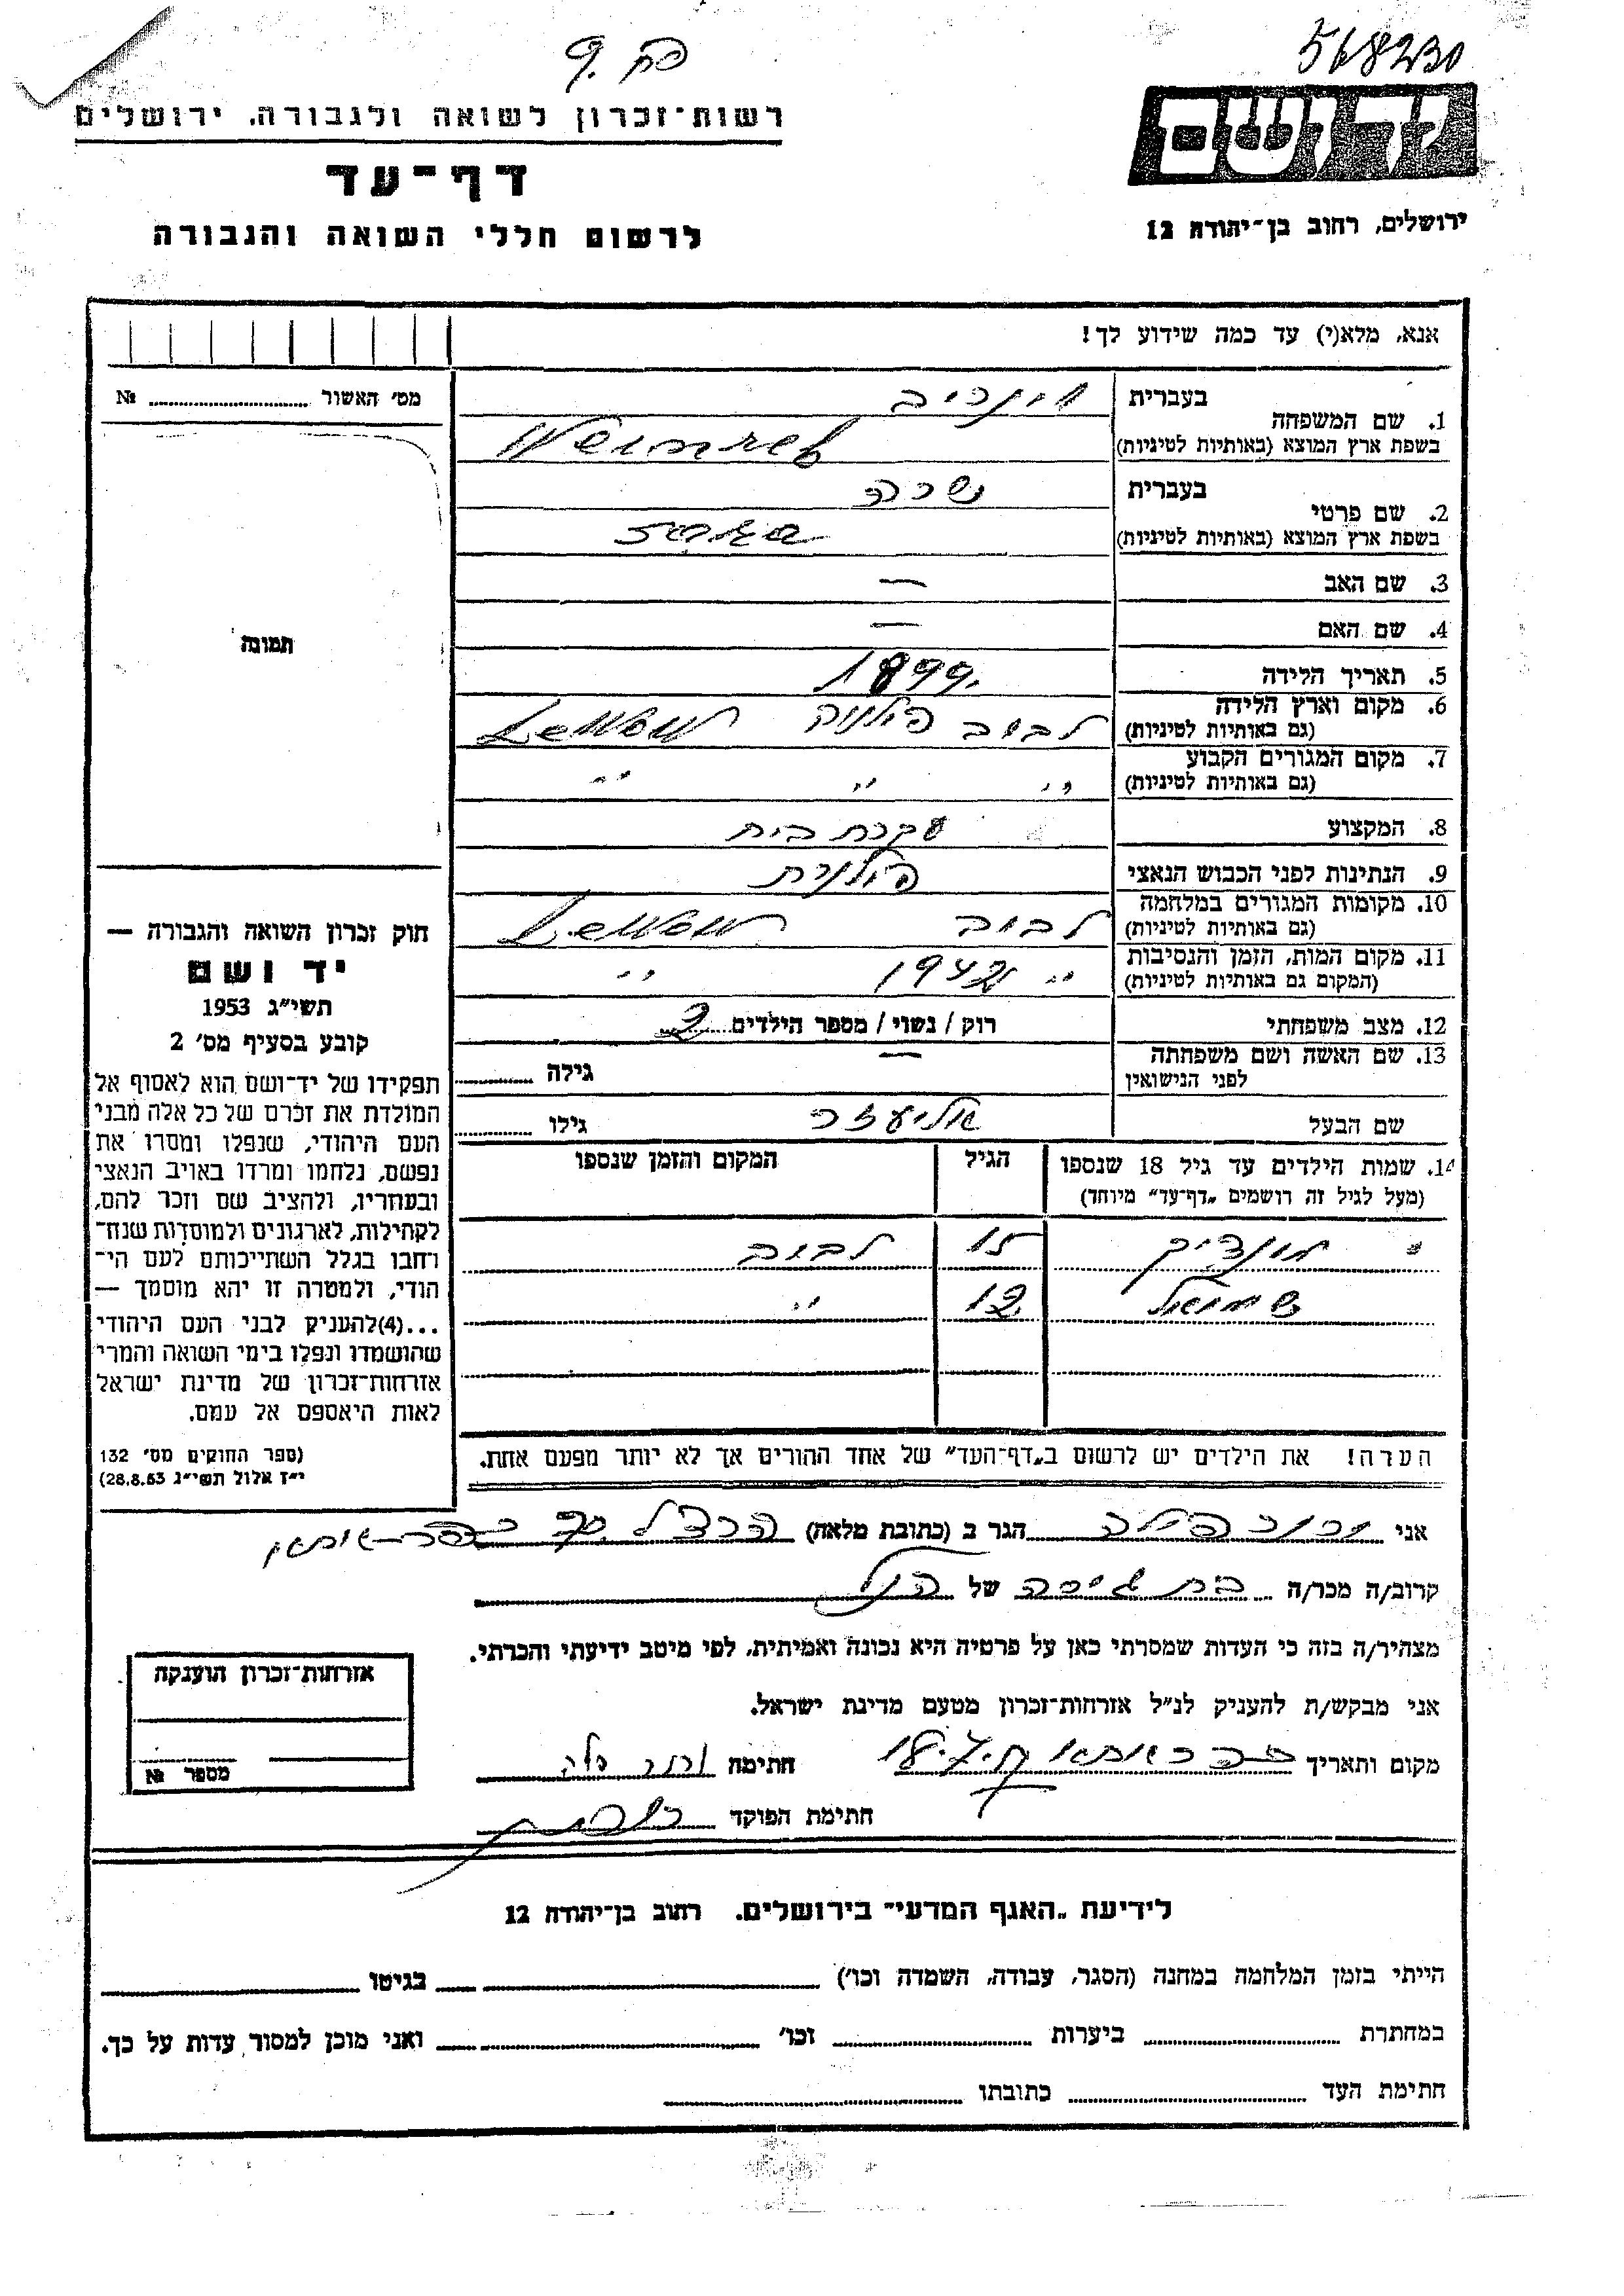 568230
פח. 9
יד ושם
רשות־זכרון לשואה ולגבורה, ירושלים
דף־עד
ירושלים, רחוב בן־יהודה 12
לרשום חללי השואה והגבורה
אנא, מלא(י) עד כמה שידוע לך!
מס׳ האשור № ..........
בעברית
1. שם המשפחה
בשפת ארץ המוצא (באותיות לטיניות)
וינריב
בעברית
2. שם פרטי
בשפת ארץ המוצא (באותיות לטיניות)
שרה
3. שם האב —
4. שם האם —
5. תאריך הלידה 1899.
6. מקום וארץ הלידה
(גם באותיות לטיניות)
לבוב פולניה
7. מקום המגורים הקבוע
(גם באותיות לטיניות)
" " "
8. המקצוע עקרת בית
9. הנתינות לפני הכבוש הנאצי פולנית
10. מקומות המגורים במלחמה
(גם באותיות לטיניות)
לבוב
11. מקום המות, הזמן והנסיבות
(המקום גם באותיות לטיניות)
" 1942 "
12. מצב משפחתי רוק / נשוי / מספר הילדים 2
13. שם האשה ושם משפחתה
לפני הנישואין
— גילה ..........
שם הבעל אליעזר גילו ..........
14. שמות הילדים עד גיל 18 שנספו
(מעל לגיל זה רושמים „דף־עד” מיוחד)
הגיל
המקום והזמן שנספו
15 לבוב
שמואל 12 "
הערה! את הילדים יש לרשום ב„דף־העד” של אחד ההורים אך לא יותר מפעם אחת.
תמונה
חוק זכרון השואה והגבורה —
יד ושם
תשי״ג 1953
קובע בסעיף מס׳ 2
תפקידו של יד־ושם הוא לאסוף אל
המולדת את זכרם של כל אלה מבני
העם היהודי, שנפלו ומסרו את
נפשם, נלחמו ומרדו באויב הנאצי
ובעוזריו, ולהציב שם וזכר להם,
לקהילות, לארגונים ולמוסדות שנח־
רחבו בגלל השתייכותם לעם הי־
הודי, ולמטרה זו יהא מוסמך —
...(4)להעניק לבני העם היהודי
שהושמדו ונפלו בימי השואה והמרי
אזרחות־זכרון של מדינת ישראל
לאות היאספם אל עמם.
(ספר החוקים מס׳ 132
י״ז אלול תשי״ג 28.8.53)
אני הגר ב (כתובת מלאה) הרצל
קרוב/ה מכר/ה בת גיסה של הנ״ל
מצהיר/ה בזה כי העדות שמסרתי כאן על פרטיה היא נכונה ואמיתית, לפי מיטב ידיעתי והכרתי.
אני מבקש/ת להעניק לנ״ל אזרחות־זכרון מטעם מדינת ישראל.
מקום ותאריך חתימה
חתימת הפוקד
אזרחות־זכרון הוענקה
מספר №
לידיעת „האגף המדעי” בירושלים. רחוב בן־יהודה 12
הייתי בזמן המלחמה במחנה (הסגר, עבודה, השמדה וכו׳) .......... בגיטו ..........
במחתרת .......... ביערות .......... וכו׳ .......... ואני מוכן למסור עדות על כך.
חתימת העד .......... כתובתו ..........